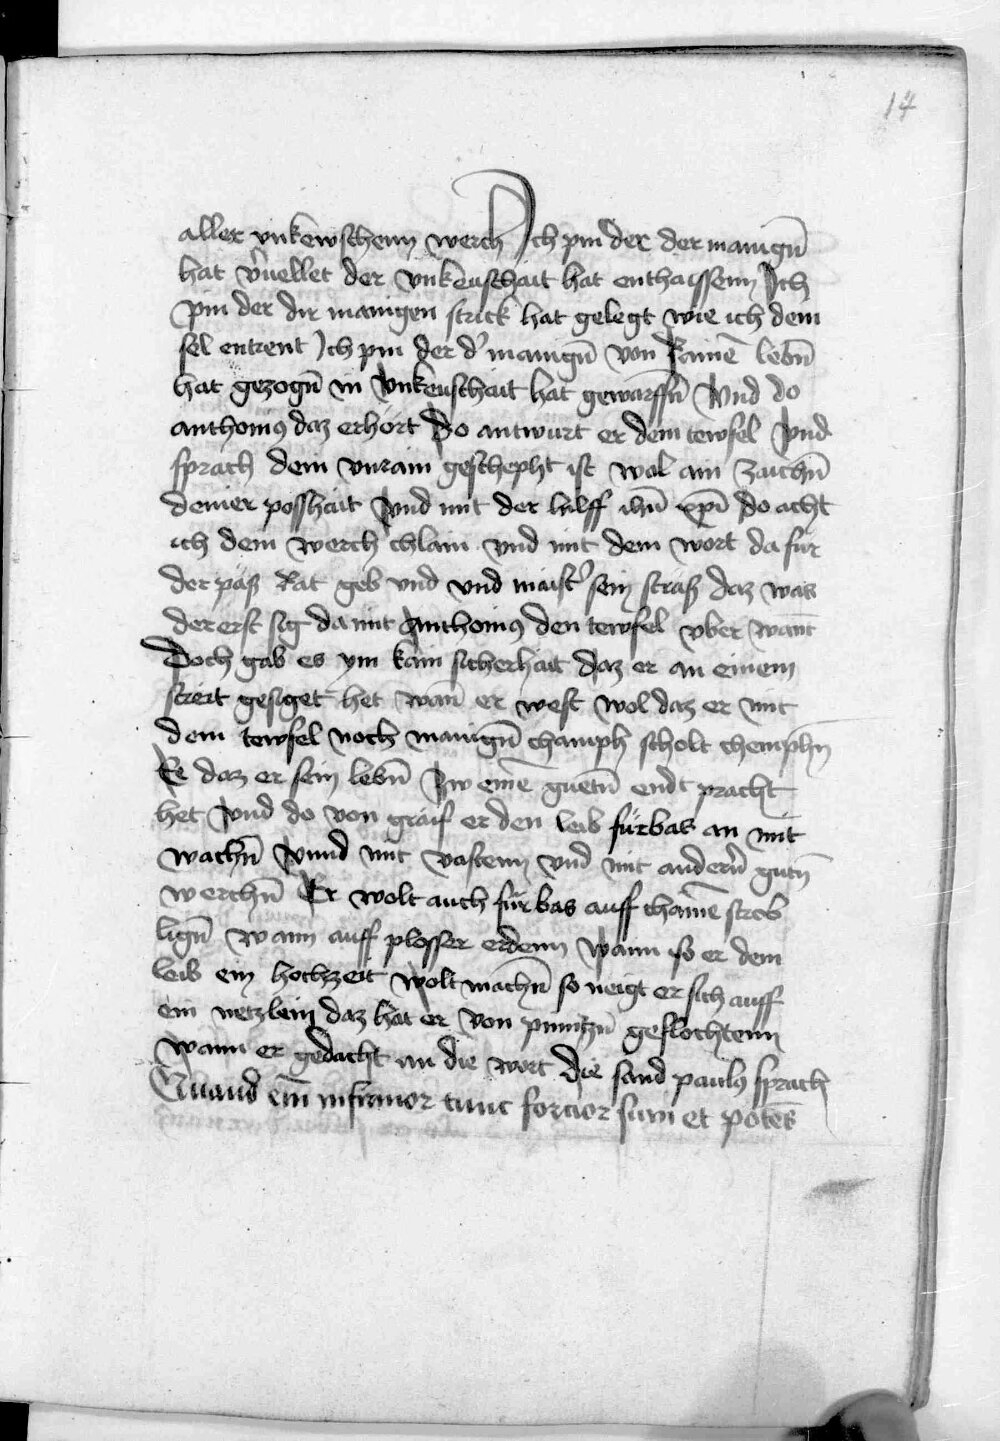 14
aller vnkewschenn werch Ich pin der der manigñ
hat v̉uellet der vnkeuschait hat enthaissenn Ich
pin der dir manigen strick hat gelegt wie ich dem
sel entrent Ich pin der d̉ manigñ von rainē lebñ
hat gezogñ in vnkeuschait hat gewarffñ Vnd do
anthonius daz erhort Do antwurt er dem tewfel Vnd
sprach dein vnrain geschepht ist wol ain zaichñ
deiner posshait Vnd mit der hilff ihū xp̄i do acht
ich dein werch chlain vnd mit dem wort da fur
der pas Rat geb vnd vnd maist̉ sein stras daz was
der erst sig da mit Anthonius den tewfel vber want
Doch gab es ym kain sicherhait daz er an einem
streit gesiget het wañ er west wol daz er mit
dem tewfel noch manigñ champh scholt chemphñ
Ee daz er sein lebñ zw einē guetñ endt pracht
het Vnd do von graif er den leib fürbas an mit
wachñ Vnnd mit vastenn vnd mit anderñ gutñ
werchñ Er wolt auch fürbas auff chainē stro
ligñ wann auff plosser erdenn wann so er dem
leib ein hochzeit wolt machñ so neigt er sich auff
ein netzlein daz hat er von pinntzñ geflochtenn
wann er gedacht an die wort die sand paulus sprach
Quand eīn infirmor tunc forcior sum et potēs